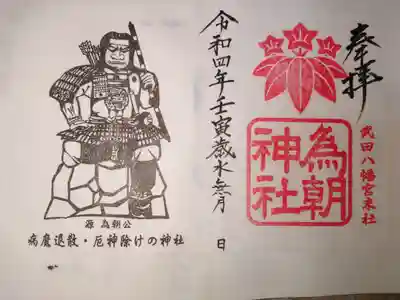 奉拝
武田八幡宮末社
為朝
神社
令和四年壬寅歳水無月 日
源為朝公
病魔退散・厄神除けの神社